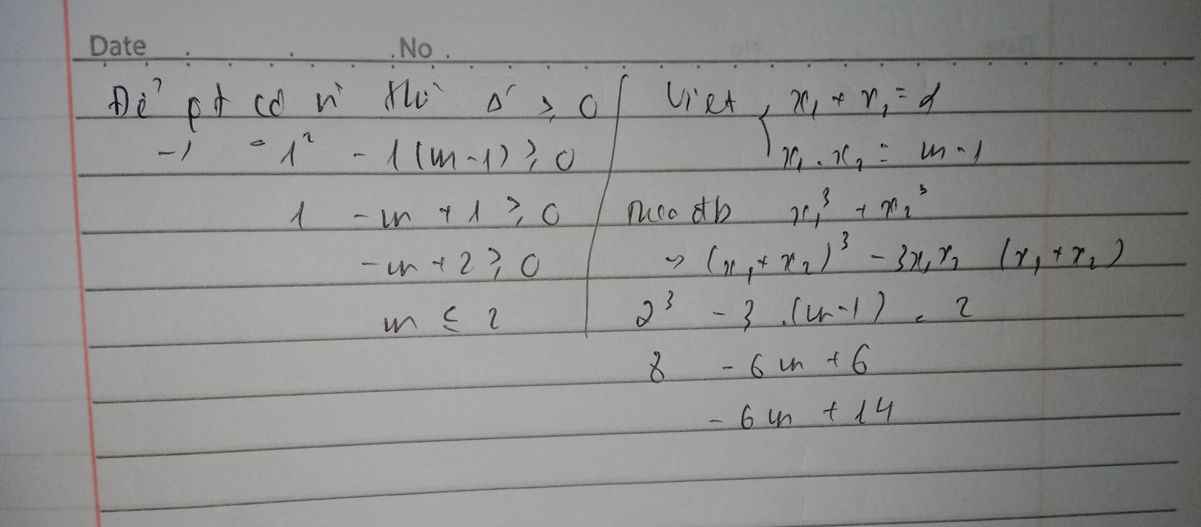 Date No.
Để pt có n° thì Δ' ≥ 0
-1 = 1² - 1(m-1) ≥ 0
1 - m + 1 ≥ 0
-m + 2 ≥ 0
m ≤ 2
Viet { x₁ + x₂ = 2
x₁ . x₂ = m-1
Theo đb x₁³ + x₂³
→ (x₁ + x₂)³ - 3x₁x₂ (x₁ + x₂)
2³ - 3 . (m-1) . 2
8 - 6m + 6
- 6m + 14